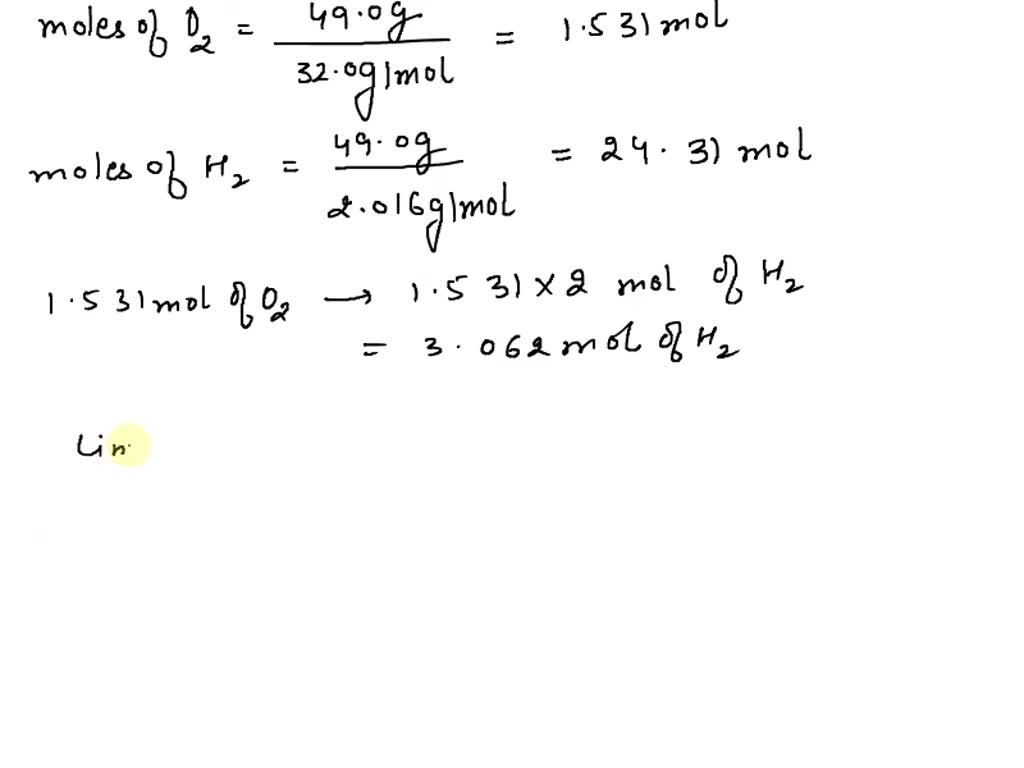 moles of O2 = 49.0g / 32.0g/mol = 1.531 mol
moles of H2 = 49.0g / 2.016g/mol = 24.31 mol
1.531 mol of O2 → 1.531 × 2 mol of H2
= 3.062 mol of H2
Lim